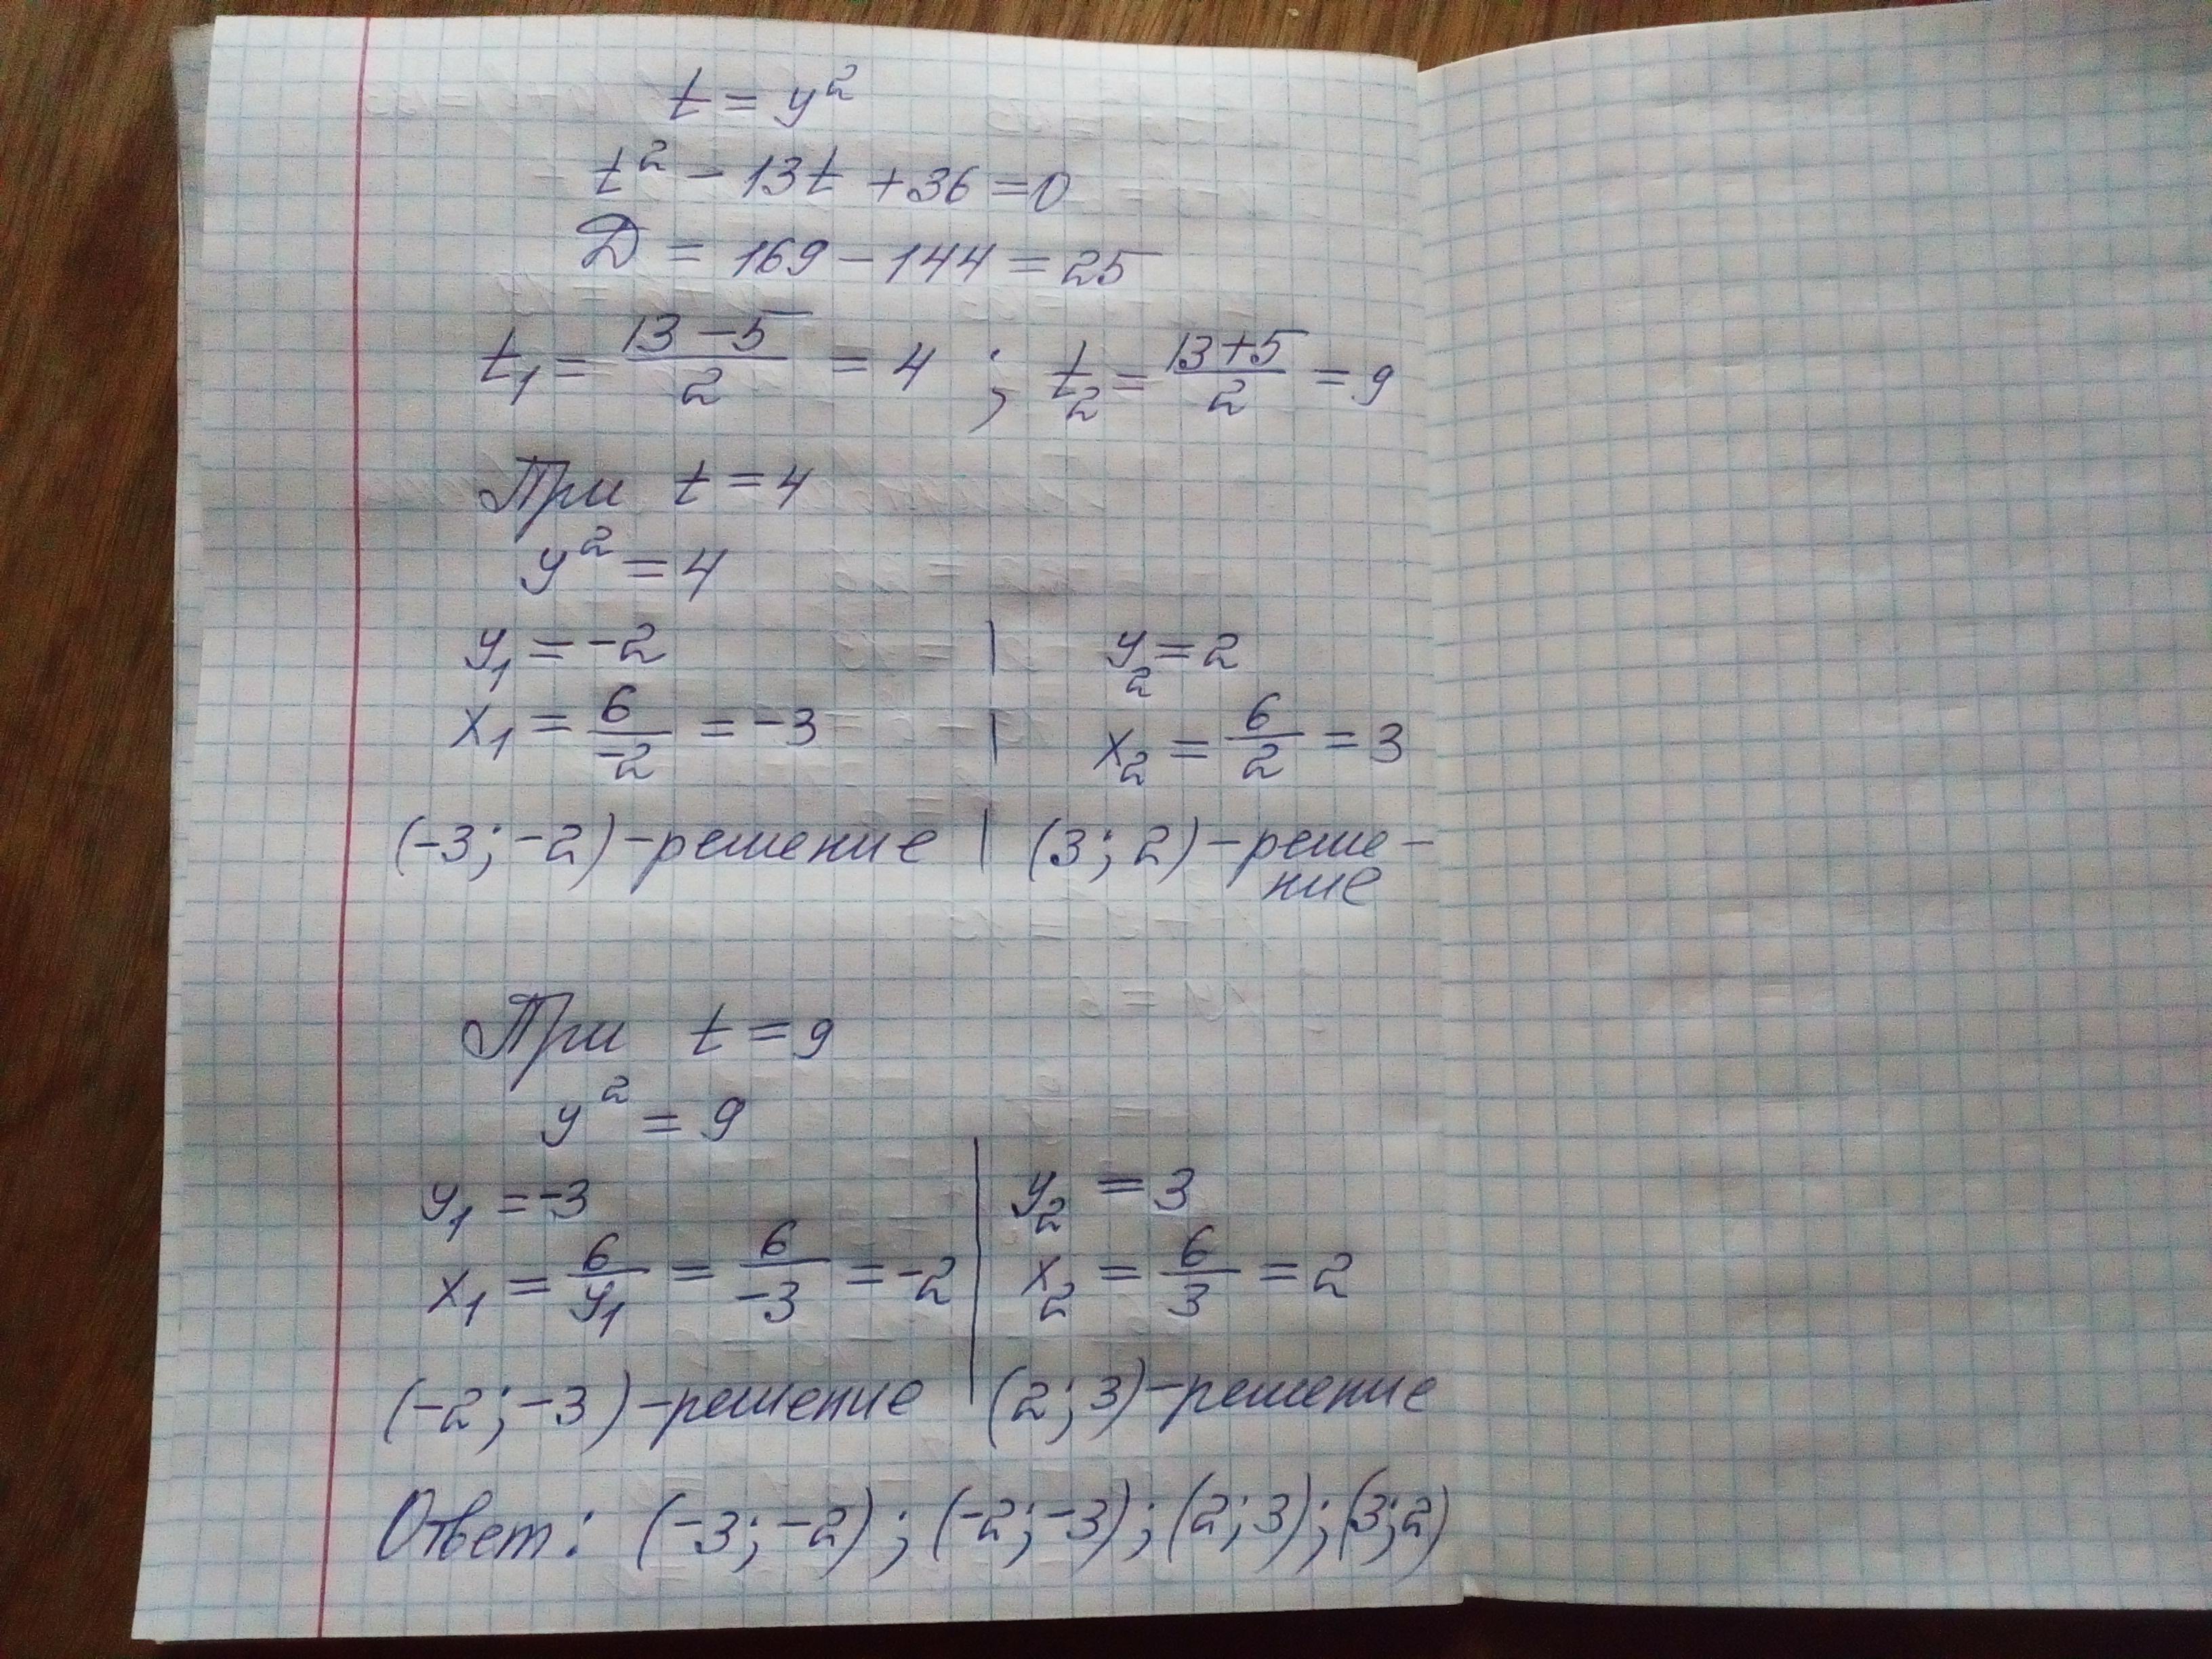 t = y²
t² - 13t + 36 = 0
D = 169 - 144 = 25
t₁ = (13 - 5)/2 = 4 ; t₂ = (13 + 5)/2 = 9
При t = 4
y² = 4
y₁ = -2 | y₂ = 2
x₁ = 6/-2 = -3 | x₂ = 6/2 = 3
(-3; -2) - решение | (3; 2) - реше-
ние
При t = 9
y² = 9
y₁ = -3 | y₂ = 3
x₁ = 6/y₁ = 6/-3 = -2 | x₂ = 6/3 = 2
(-2; -3) - решение | (2; 3) - решение
Ответ: (-3; -2); (-2; -3); (2; 3); (3; 2)